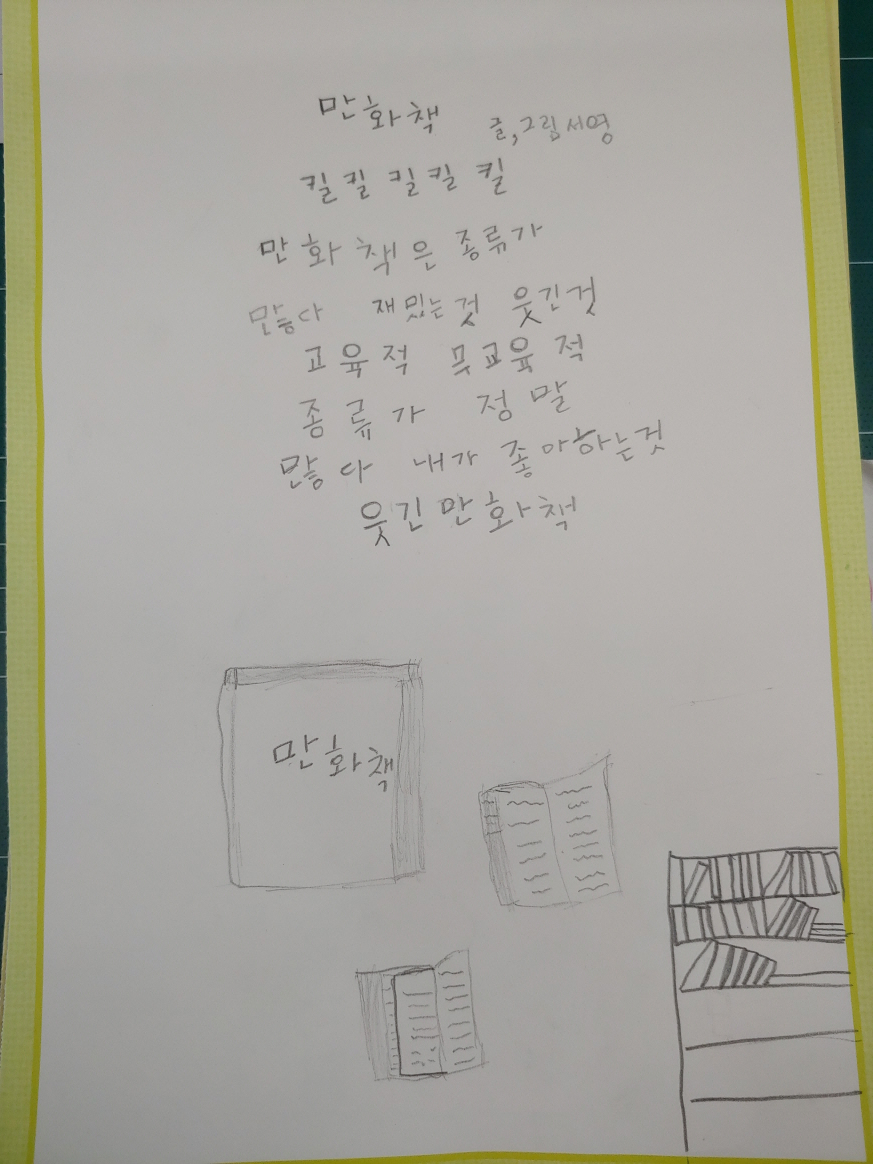 만화책
글,그림 서영
킬킬 킬킬 킬
만화책은 종류가
많다 재밌는것 웃긴것
교육적 무교육적
종류가 정말
많다 내가 좋아하는것
웃긴만화책
만화책